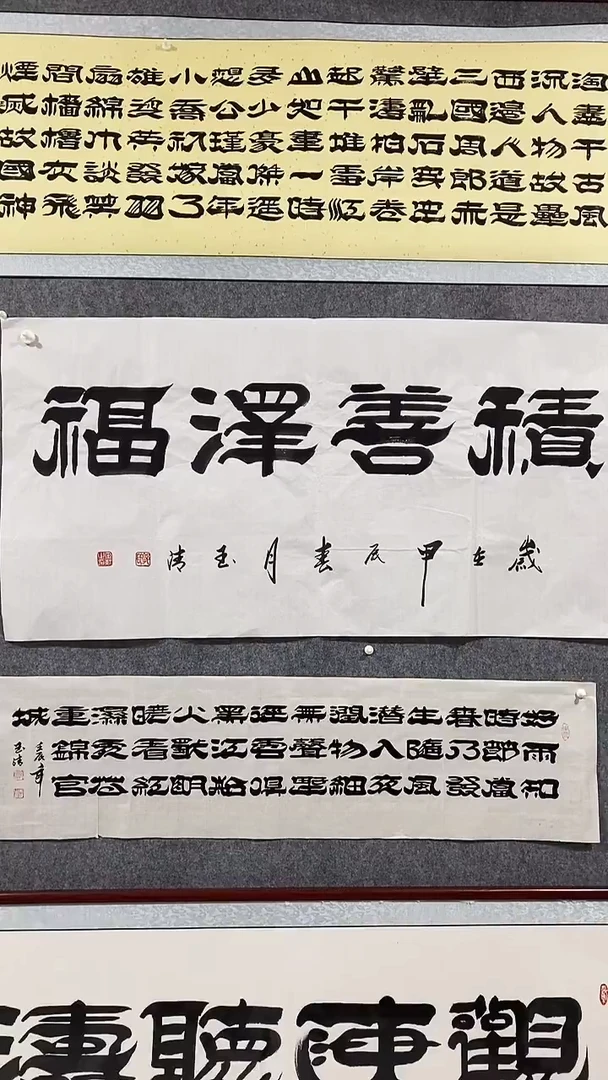 淘盡千古風
流人物故壘
西邊人道是
三國周郎赤
壁亂石穿空
驚濤拍岸卷
起千堆雪江
山如畫一時
多少豪傑遥
想公瑾當年
小喬初嫁了
雄姿英發羽
扇綸巾談笑
間檣櫓灰飛
煙滅故國神
積善澤福
歲在甲辰春月玉清
好雨知
時節當
春乃發
生隨風
潛入夜
潤物細
無聲野
徑雲俱
黑江船
火獨明
曉看紅
濕處花
重錦官
城
壬辰年
玉清
觀海聽濤